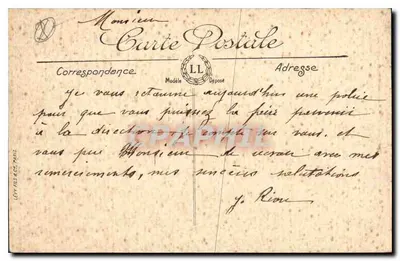 Monsieur
Carte Postale
Correspondance
Adresse
LL
Modèle Déposé
je vous retourne aujourd'hui une police
pour que vous puissiez la faire parvenir
à la direction je vous et
vous prie Monsieur de avec mes
remerciements, mes sincères salutations
J. Riou